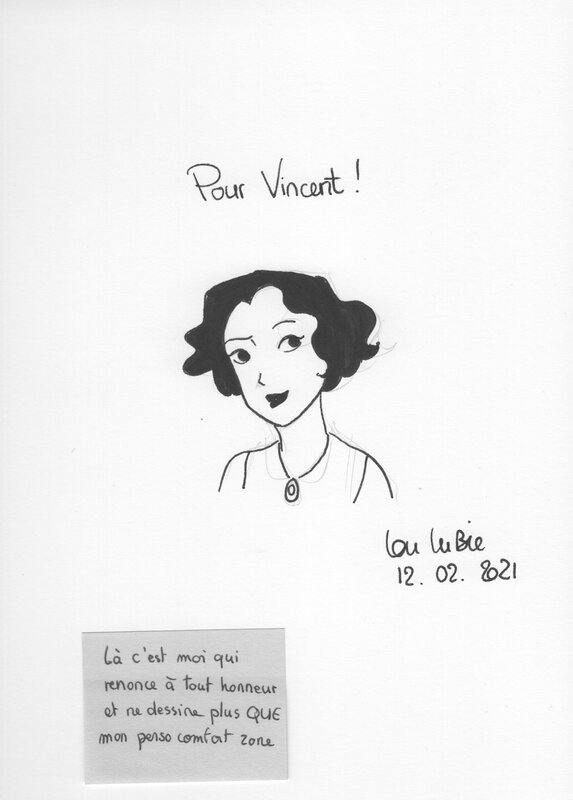 Pour Vincent !
Lou Lubie
12. 02. 2021
Là c'est moi qui
renonce à tout honneur
et ne dessine plus QUE
mon perso comfort zone